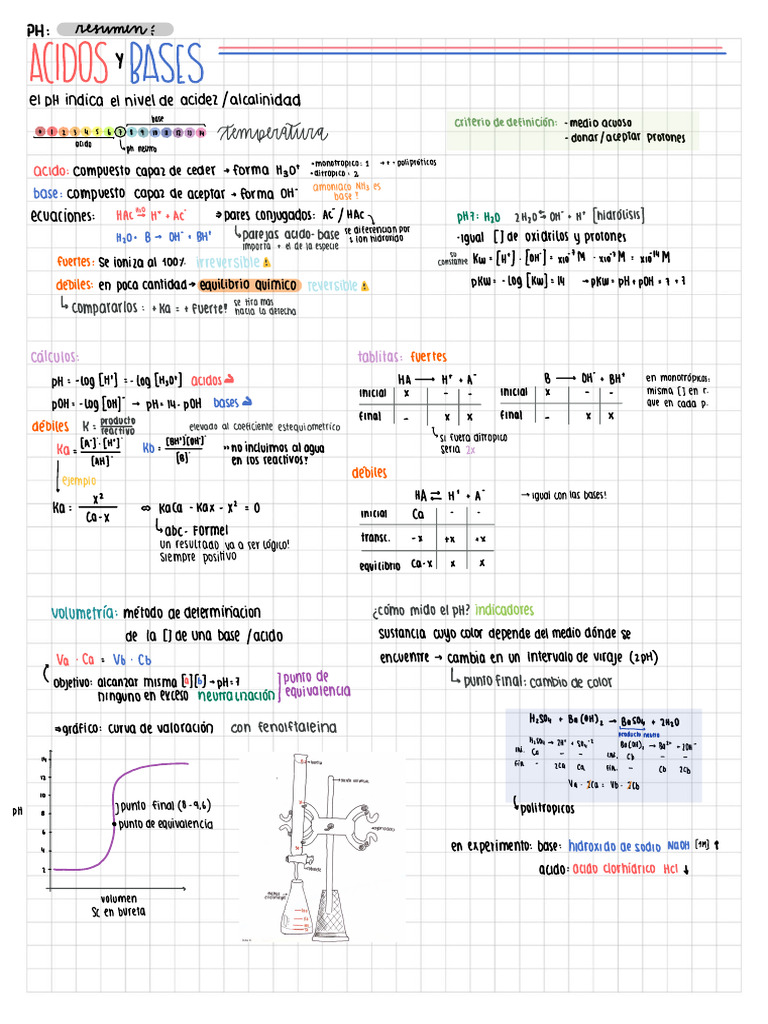 PH: resumen:
ACIDOS y BASES
el pH indica el nivel de acidez/alcalinidad
base
0 1 2 3 4 5 6 7 8 9 10 11 12 13 14
acido
pH neutro
temperatura
criterio de definición: - medio acuoso
- donar/aceptar protones
acido: compuesto capaz de ceder → forma H₃O⁺
• monotropico: 1
• ditropico: 2
→ + • polipróticos
base: compuesto capaz de aceptar → forma OH⁻
amoniaco NH₃ es base?
ecuaciones: HAc H₂O → H⁺ + Ac⁻ ⇒ pares conjugados: Ac⁻/HAc
H₂O + B → OH⁻ + BH⁺
↳ parejas acido-base
importa + el de la especie
se diferencian por 1 ion hidroxido
fuertes: se ioniza al 100% irreversible
debiles: en poca cantidad → equilibrio quimico reversible
↳ compararlos: + Ka = + fuerte!
se tira mas hacia la derecha
pH 7: H₂O 2H₂O ⇌ OH⁻ + H⁺ [hidrólisis]
-igual [] de oxidrilos y protones
su constante
Kw = [H⁺] · [OH⁻] = x10⁻⁷ M · x10⁻⁷ M = x10⁻¹⁴ M
pKw = - log [Kw] = 14 → pKw = pH + pOH = 7 + 7
calculos:
pH = -log [H⁺] = -log [H₃O⁺] acidos
pOH = -log [OH]⁻ → pH = 14 - pOH bases
débiles K = producto / reactivo
elevado al coeficiente estequiometrico
Ka = [A⁻]·[H⁺] / [AH]
Kb = [BH⁺][OH⁻] / [B]
"no incluimos al agua en los reactivos!
ejemplo
Ka = x² / Ca-x ⇔ KaCa - Kax - x² = 0
↳ abc- Formel
un resultado va a ser lógico!
siempre positivo
tablitas: fuertes
HA → H⁺ + A⁻
inicial x - -
final - x x
↳ si fuera ditropico seria 2x
B → OH⁻ + BH⁺
inicial x - -
final - x x
en monotrópicos:
misma [] en r.
que en cada p.
debiles
HA ⇌ H⁺ + A⁻
inicial Ca - -
transc. -x +x +x
equilibrio Ca-x x x
→ igual con las bases!
volumetría: método de determinacion
de la [] de una base/acido
Va · Ca = Vb · Cb
objetivo: alcanzar misma [a][b] → pH=7
ninguno en exceso neutralización
punto de equivalencia
⇒ gráfico: curva de valoración con fenolftaleina
14
12
10
8
6
4
2
pH
punto final (8-9,6)
punto de equivalencia
volumen
sc en bureta
¿cómo mido el pH? indicadores
sustancia cuyo color depende del medio dónde se
encuentre → cambia en un intervalo de viraje (2pH)
↳ punto final: cambio de color
H₂SO₄ + Ba(OH)₂ → BaSO₄ + 2H₂O
producto neutro
H₂SO₄ → 2H⁺ + SO₄⁻²
ini. Ca - -
fin. - 2Ca Ca
Ba(OH)₂ → Ba²⁺ + 2OH⁻
ini. Cb - -
fin. - Cb 2Cb
Va · 2Ca = Vb · 2Cb
↳ politropicos
en experimento: base: hidroxido de sodio NaOH [1M] ↑
acido: acido clorhídrico HCl ↓